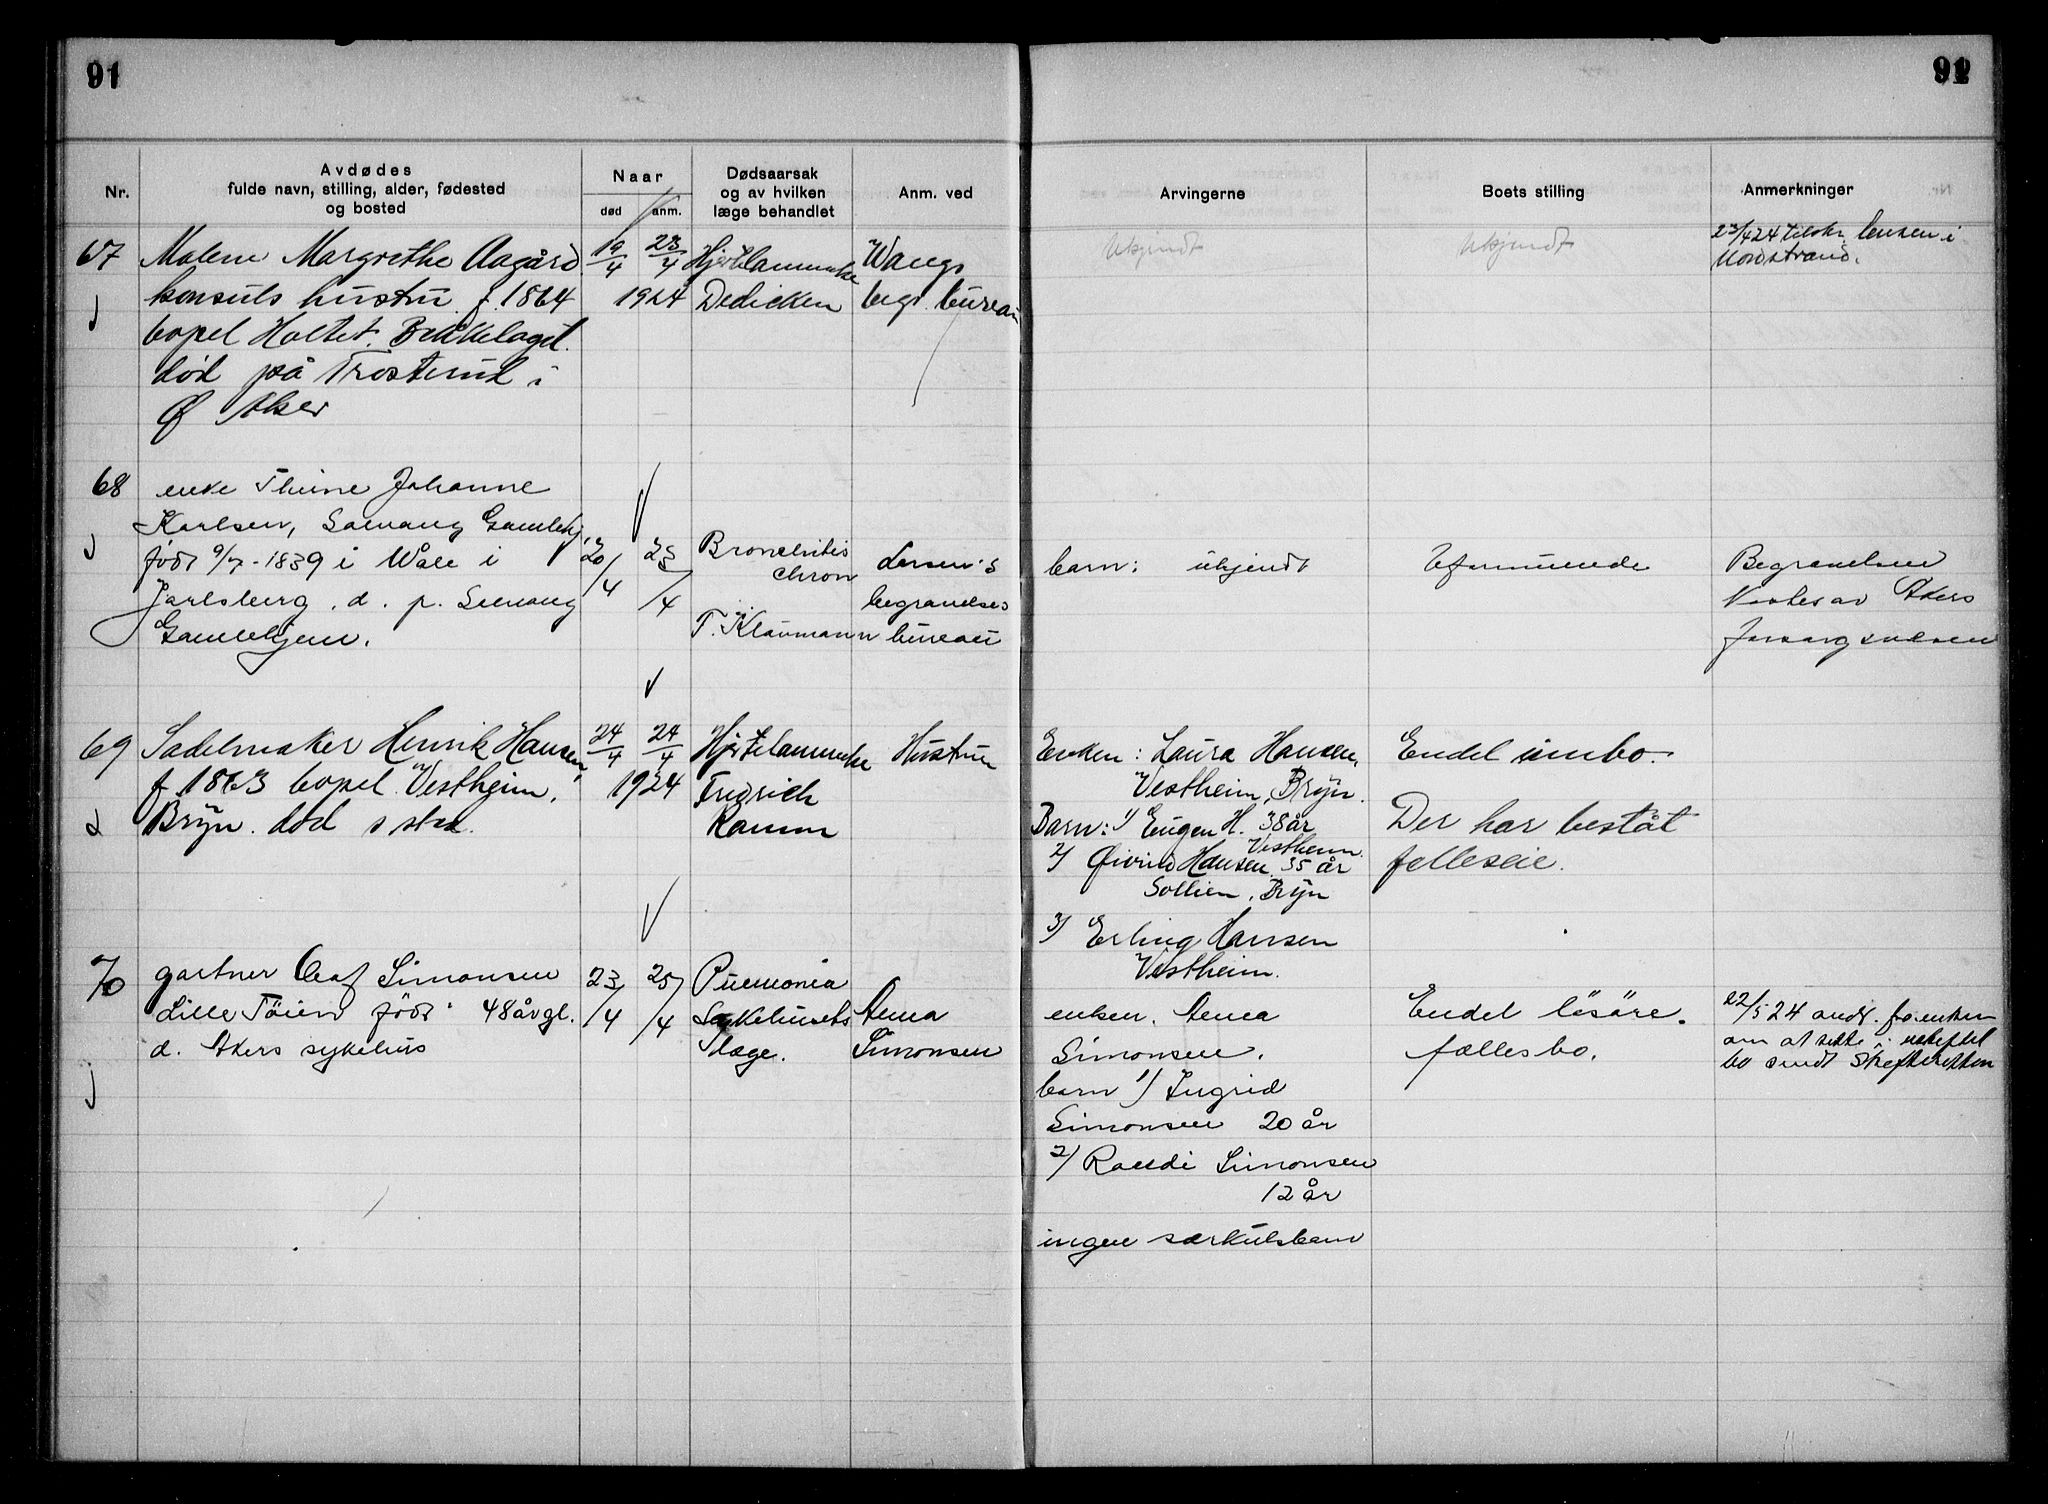 91
91
Nr.
Avdødes
fulde navn, stilling, alder, fødested
og bosted
Naar
død
anm.
Dødsaarsak
og av hvilken
læge behandlet
Anm. ved
Arvingerne
Boets stilling
Anmerkninger
67
Malene Margrethe Aagård
konsuls hustru f. 1864
bopel Holtet. Bekkelaget.
død på Trosterud i
Ø Aker
19/4 23/4
1924
Hjertelammelse
Dedicken
Wangs
begr. bureau
Ukjendt
Ukjendt
23/4 24 tilskr. lensm. i
Nordstrand.
68
enke Thine Johanne
Karlsen, Solvang Gamlehj.
født 9/7-1839 i Wåle i
Jarlsberg. d. p. Solvang
Gamlehjem.
20/4
23/4
Bronchitis
chron
T. Klaumann
Larsen's
begravelses
bureau
barn: ukjendt
Uformuende
Begravelsen
av Akers
69
Sadelmaker Henrik Hansen
f. 1863 bopel Vestheim,
Bryn. død s sted.
24/4 24/4
1924
Hjertelammelse
Fredrich
Ramm
Hustru
Enken: Laura Hansen,
Vestheim, Bryn.
Barn: 1) Eugen H. 38 år
Vestheim.
2) Øivind Hansen 35 år
Sollien, Bryn
3) Erling Hansen
Vestheim.
Endel innbo.
Der har bestået
felleseie.
70
gartner Olaf Simonsen
Lille Töien født 48 år gl.
d. Akers sykehus
23/4
25/4
Pnemonia
Sykehusets
læge.
Anna
Simonsen
enken. Anna
Simonsen.
barn 1) Ingrid
Simonsen 20 år
2) Randi Simonsen
12 år
ingen særkulsbarn
Endel lösöre.
fællesbo.
22/5 24 andr. fra enken
om at sitte i uskiftet
bo sendt Skifteretten